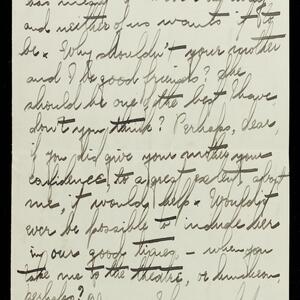 and neither of us wants it to
be. Why shouldn't your mother
and I be good friends? She
should be one of the best I have
don't you think? Perhaps, dear,
if you did give your mother your
confidence, to a great extent, about
me, it would help. Wouldn't
ever be possible to include her
in our good times, – when you
take me to the theatre, or luncheon,
perhaps?